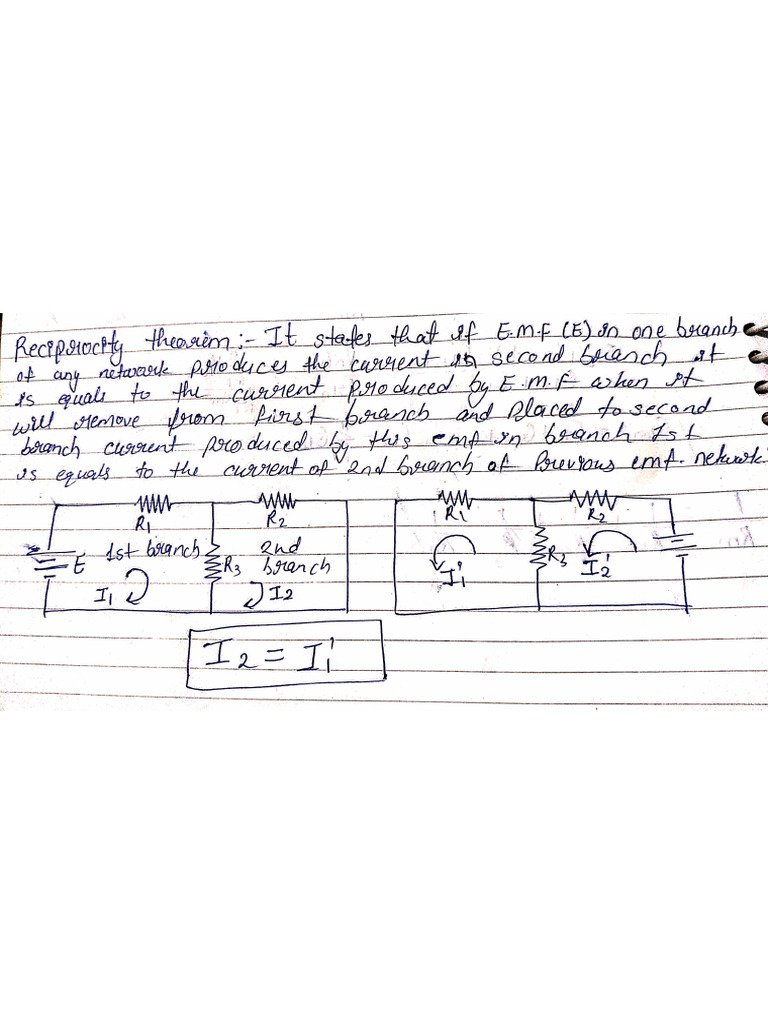 Reciprocity theorem:- It states that if E.M.F (E) in one branch
of any network produces the current in second branch it
is equals to the current produced by E.M.F when it
will remove from first branch and placed to second
branch current produced by this emf in branch 1st
is equals to the current of 2nd branch of Previous emf. network.
R1 R2 R1 R2
E 1st branch R3 2nd branch R3
I1 I2 I1' I2'
I2 = I1'